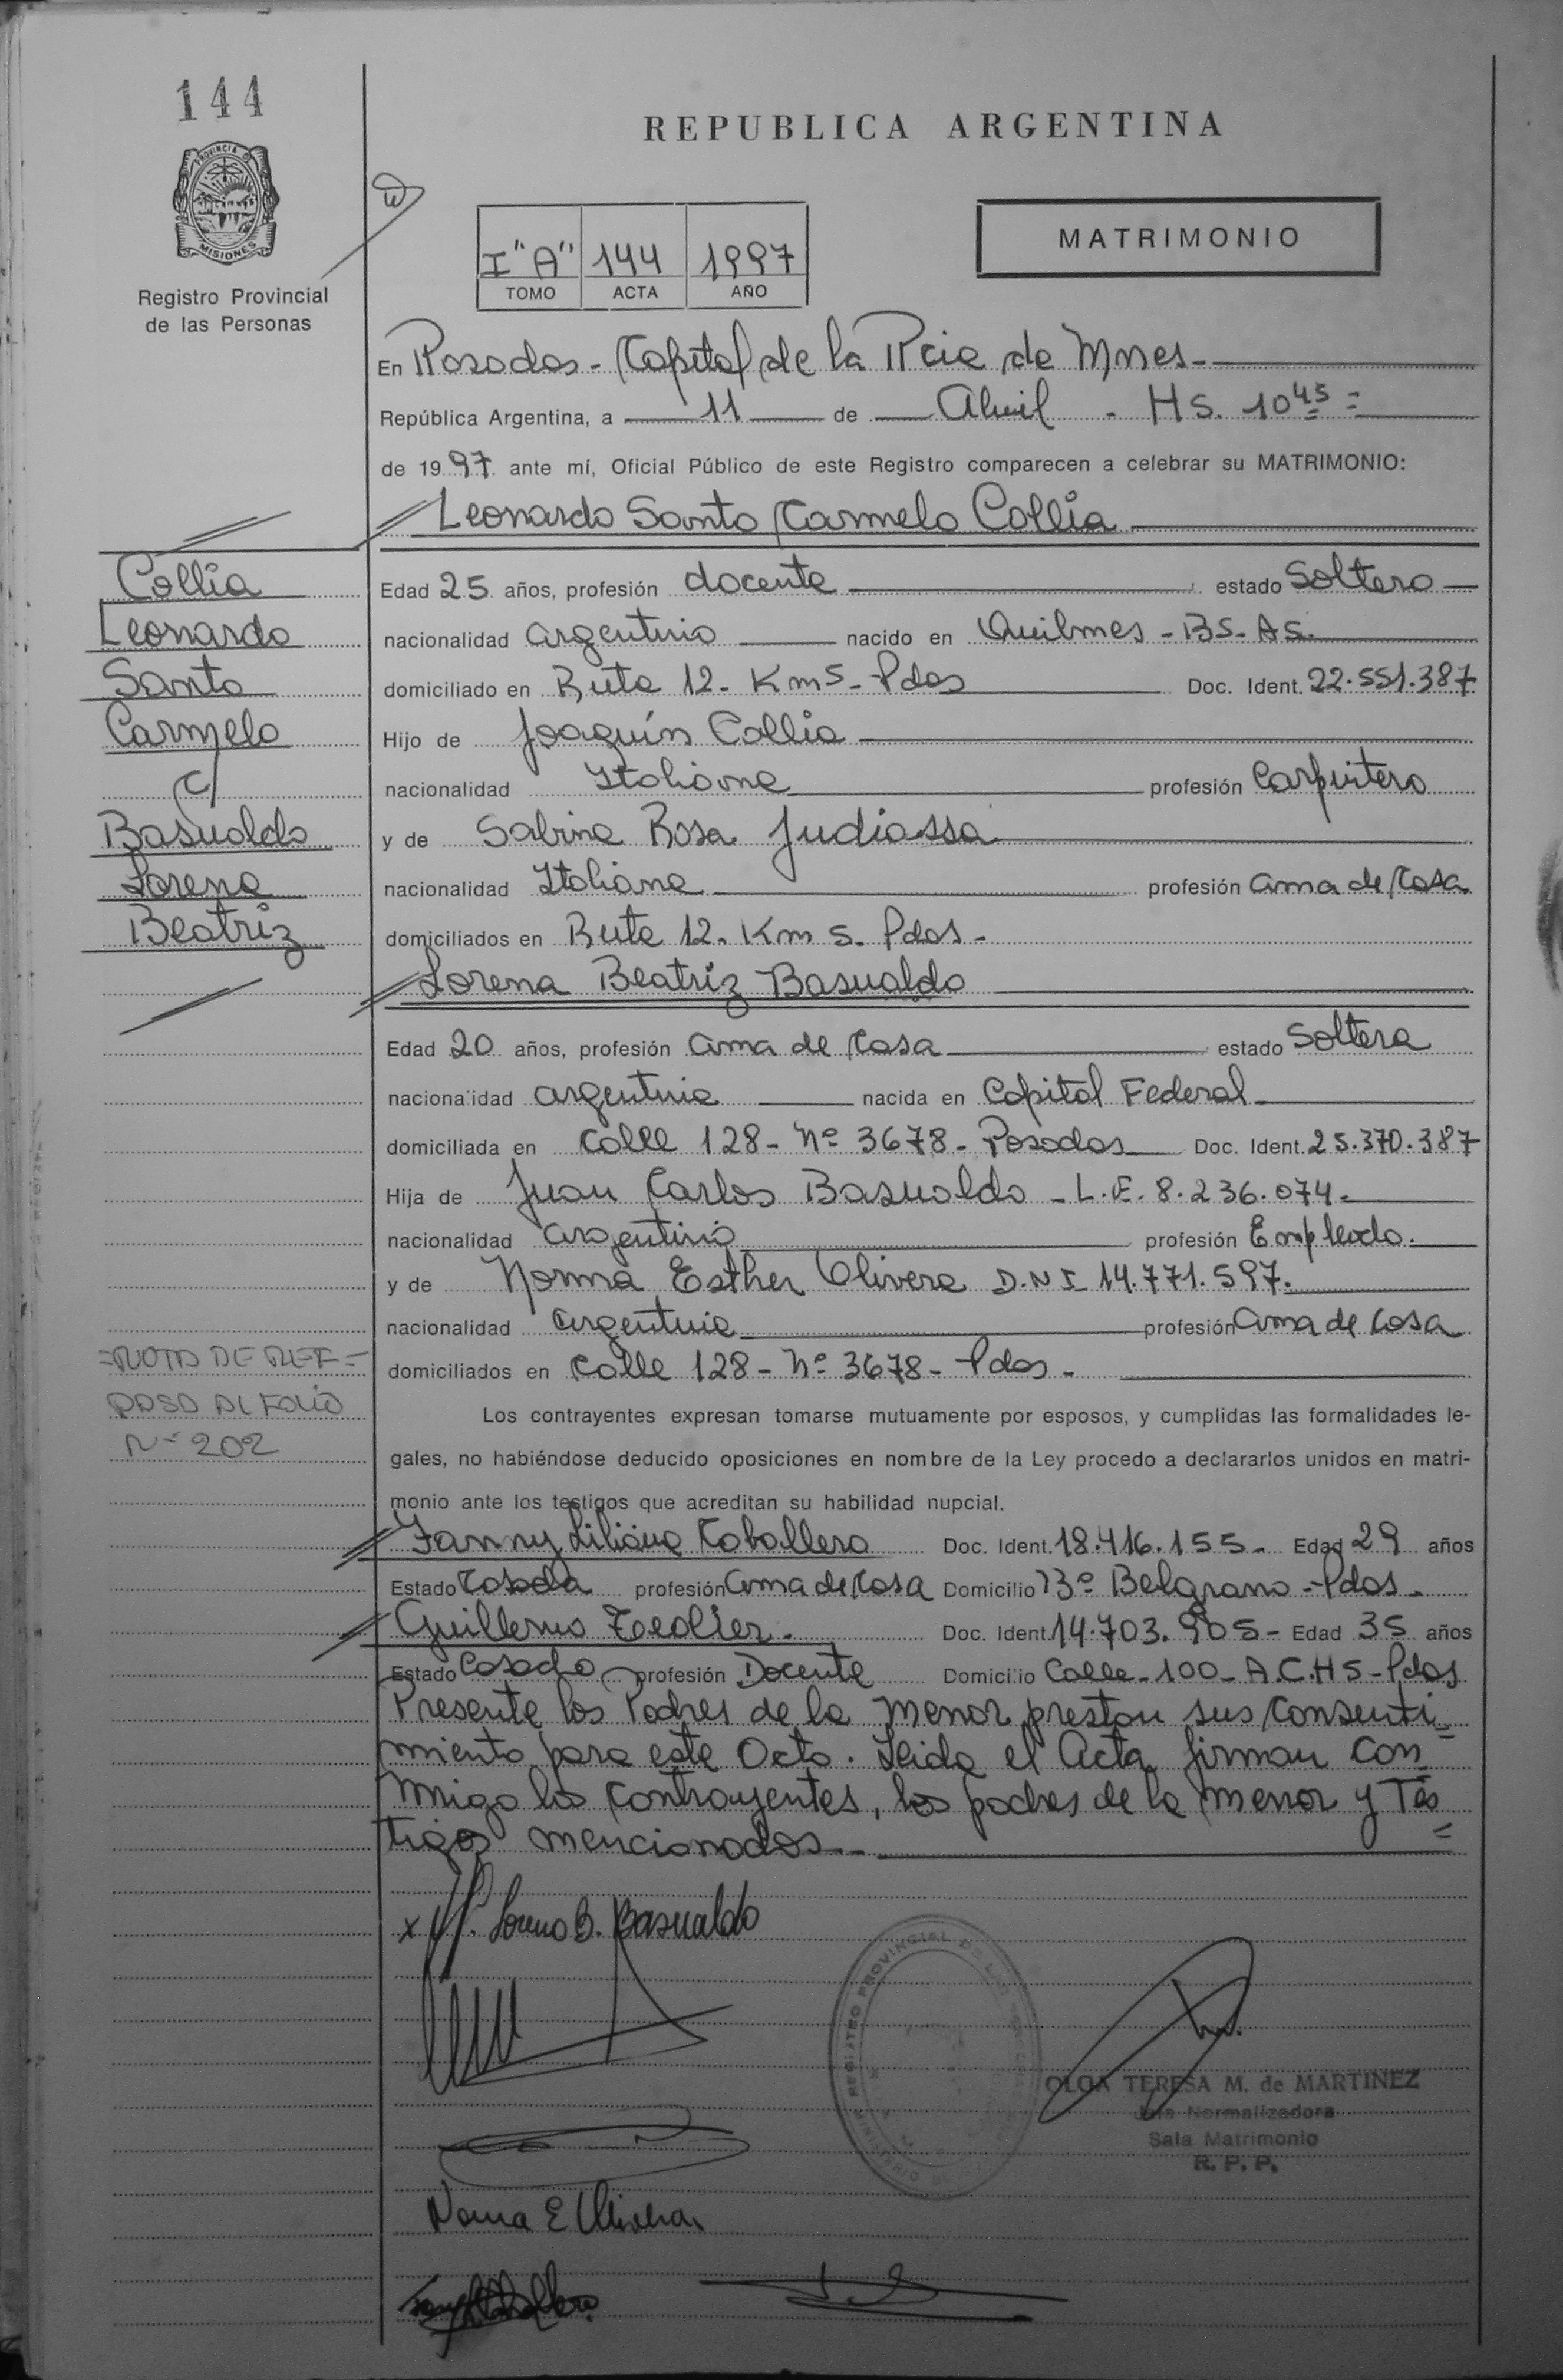 144
REPUBLICA ARGENTINA
PROVINCIA D
MISIONES
Registro Provincial
de las Personas
I "A" 144 1997
TOMO ACTA AÑO
MATRIMONIO
En Posadas - Capital de la Pcia de Mnes -
República Argentina, a 11 de Abril - Hs. 10 45 =
de 1997 ante mí, Oficial Público de este Registro comparecen a celebrar su MATRIMONIO:
Leonardo Santo Carmelo Collia
Collia
Leonardo
Santo
Carmelo
c/
Basualdo
Lorena
Beatriz
Edad 25 años, profesión docente estado Soltero
nacionalidad argentino nacido en Quilmes - BS. AS.
domiciliado en Ruta 12 - Km 5 - Pdas Doc. Ident. 22.551.387
Hijo de Joaquín Collia
nacionalidad Italiana profesión Carpintero
y de Sabina Rosa Judiassa
nacionalidad Italiana profesión ama de casa
domiciliados en Ruta 12 - Km 5 - Pdas -
Lorena Beatriz Basualdo
Edad 20 años, profesión ama de casa estado Soltera
nacionalidad argentina nacida en Capital Federal
domiciliada en Calle 128 - Nº 3678 - Posadas Doc. Ident. 25.370.387
Hija de Juan Carlos Basualdo - L.E. 8.236.074.
nacionalidad argentino profesión Empleado.
y de Norma Esther Olivera D.N.I 14.771.597.
nacionalidad argentina profesión ama de casa
domiciliados en Calle 128 - Nº 3678 - Pdas -
=NOTA DE REF=
PASA AL FOLIO
Nº 202
Los contrayentes expresan tomarse mutuamente por esposos, y cumplidas las formalidades le-
gales, no habiéndose deducido oposiciones en nombre de la Ley procedo a declararlos unidos en matri-
monio ante los testigos que acreditan su habilidad nupcial.
Fanny Liliana Caballero Doc. Ident. 18.416.155 - Edad 29 años
Estado Casada profesión ama de casa Domicilio Bº Belgrano - Pdas -
Guillermo Doc. Ident. 14.703.905 - Edad 35 años
Estado Casado profesión Docente Domicilio Calle - 100 - A.C.H 5 - Pdas
Presente los Padres de la menor prestan sus consenti=
miento para este Acto. Leida el Acta firman con
migo los contrayentes, los padres de la menor y Tes
tigos mencionados.-
x Lorena B. Basualdo
REGISTRO PROVINCIAL DE LAS
MINISTERIO DE
OLGA TERESA M. de MARTINEZ
Jefa Normalizadora
Sala Matrimonio
R. P. P.
Norma E Olivera